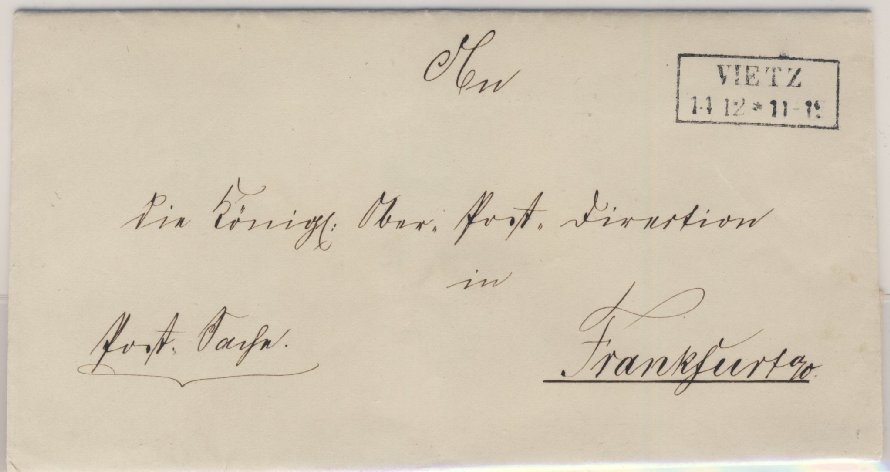 An
VIETZ
14 12 * 11-12
die Königl: Ober-Post-Direction
in
Post-Sache.
Frankfurt a/O.